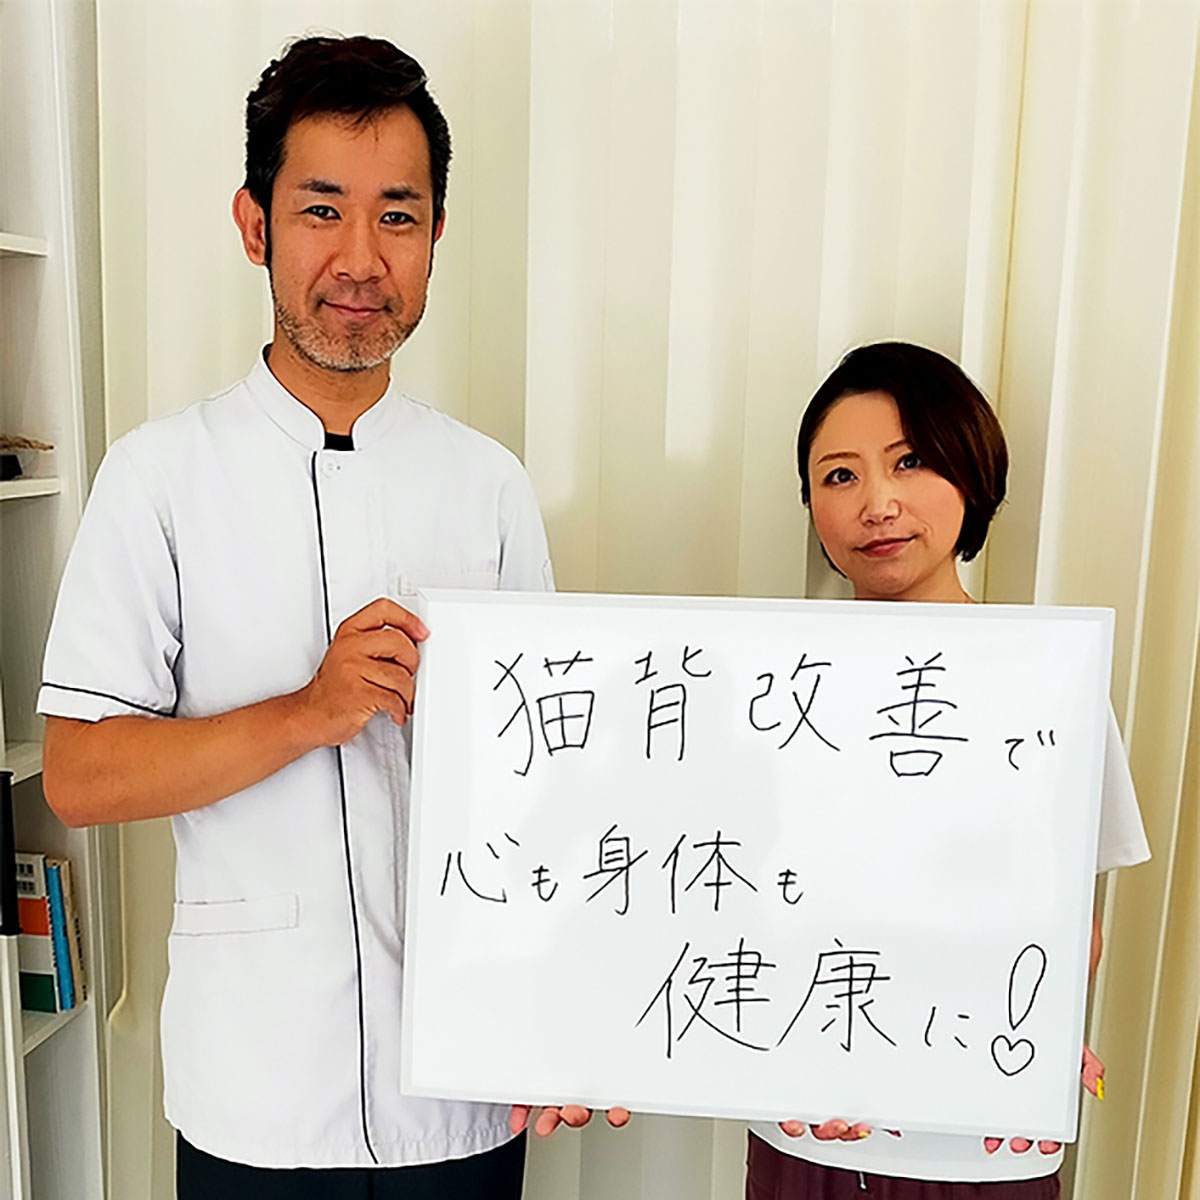 猫背改善で
心も身体も
健康に!